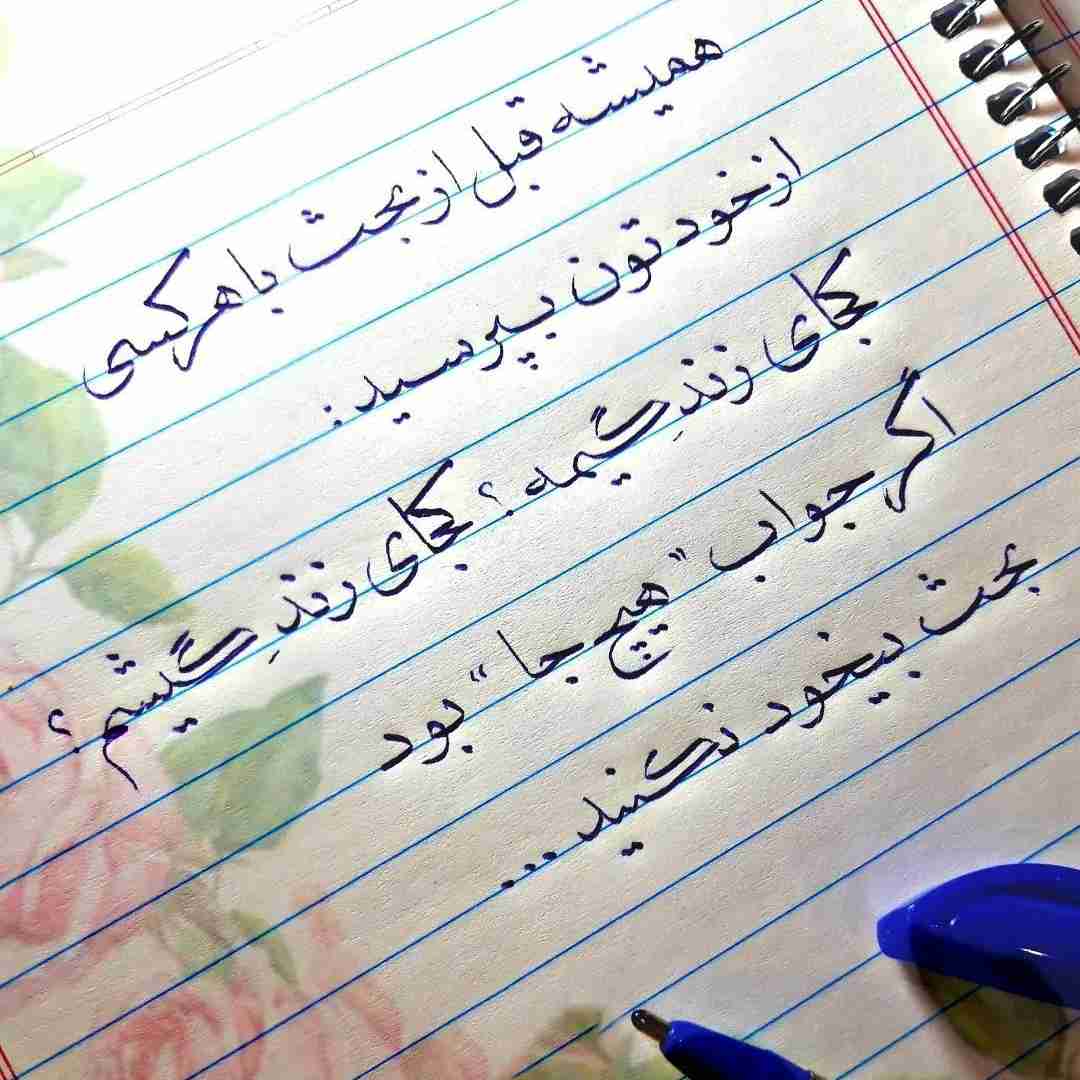 همیشه قبل از بحث با هر کسی
از خودتون بپرسید:
کجای زندِگیمه؟ کجای زندِگیشم؟
اگر جواب "هیچ جا" بود
بحث بیخود نکنید...